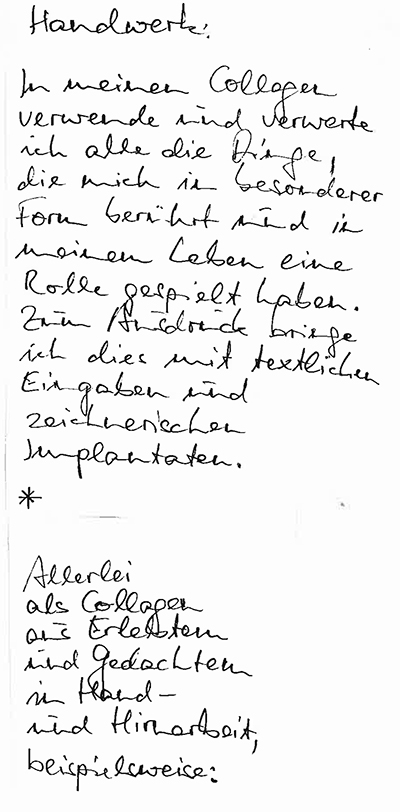 Handwerk:
In meinen Collagen
verwende und verwerte
ich alle die Dinge,
die mich in besonderer
Form berührt und in
meinem Leben eine
Rolle gespielt haben.
Zum Ausdruck bringe
ich dies mit textlichen
Eingaben und
zeichnerischen
Implantaten.
*
Allerlei
als Collagen
aus Erlebtem
und Gedachtem
in Hand-
und Hirnarbeit,
beispielsweise: